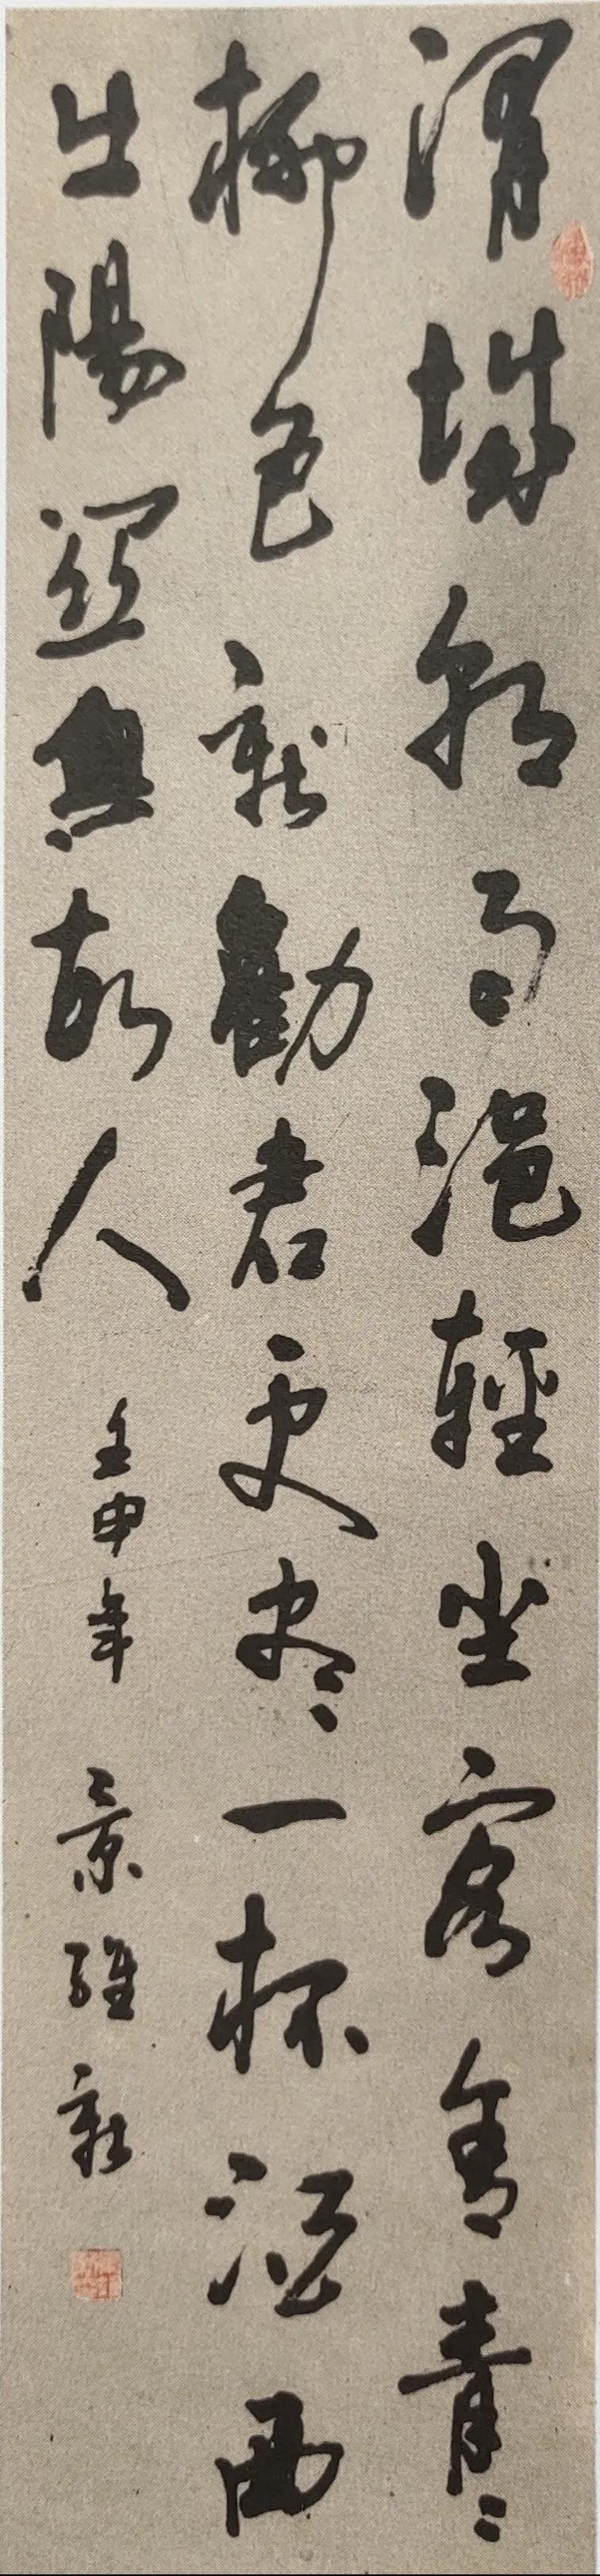 渭城朝雨浥輕尘客舍青々
柳色新勸君更盡一杯酒西
出陽關無故人 壬申年 景維新